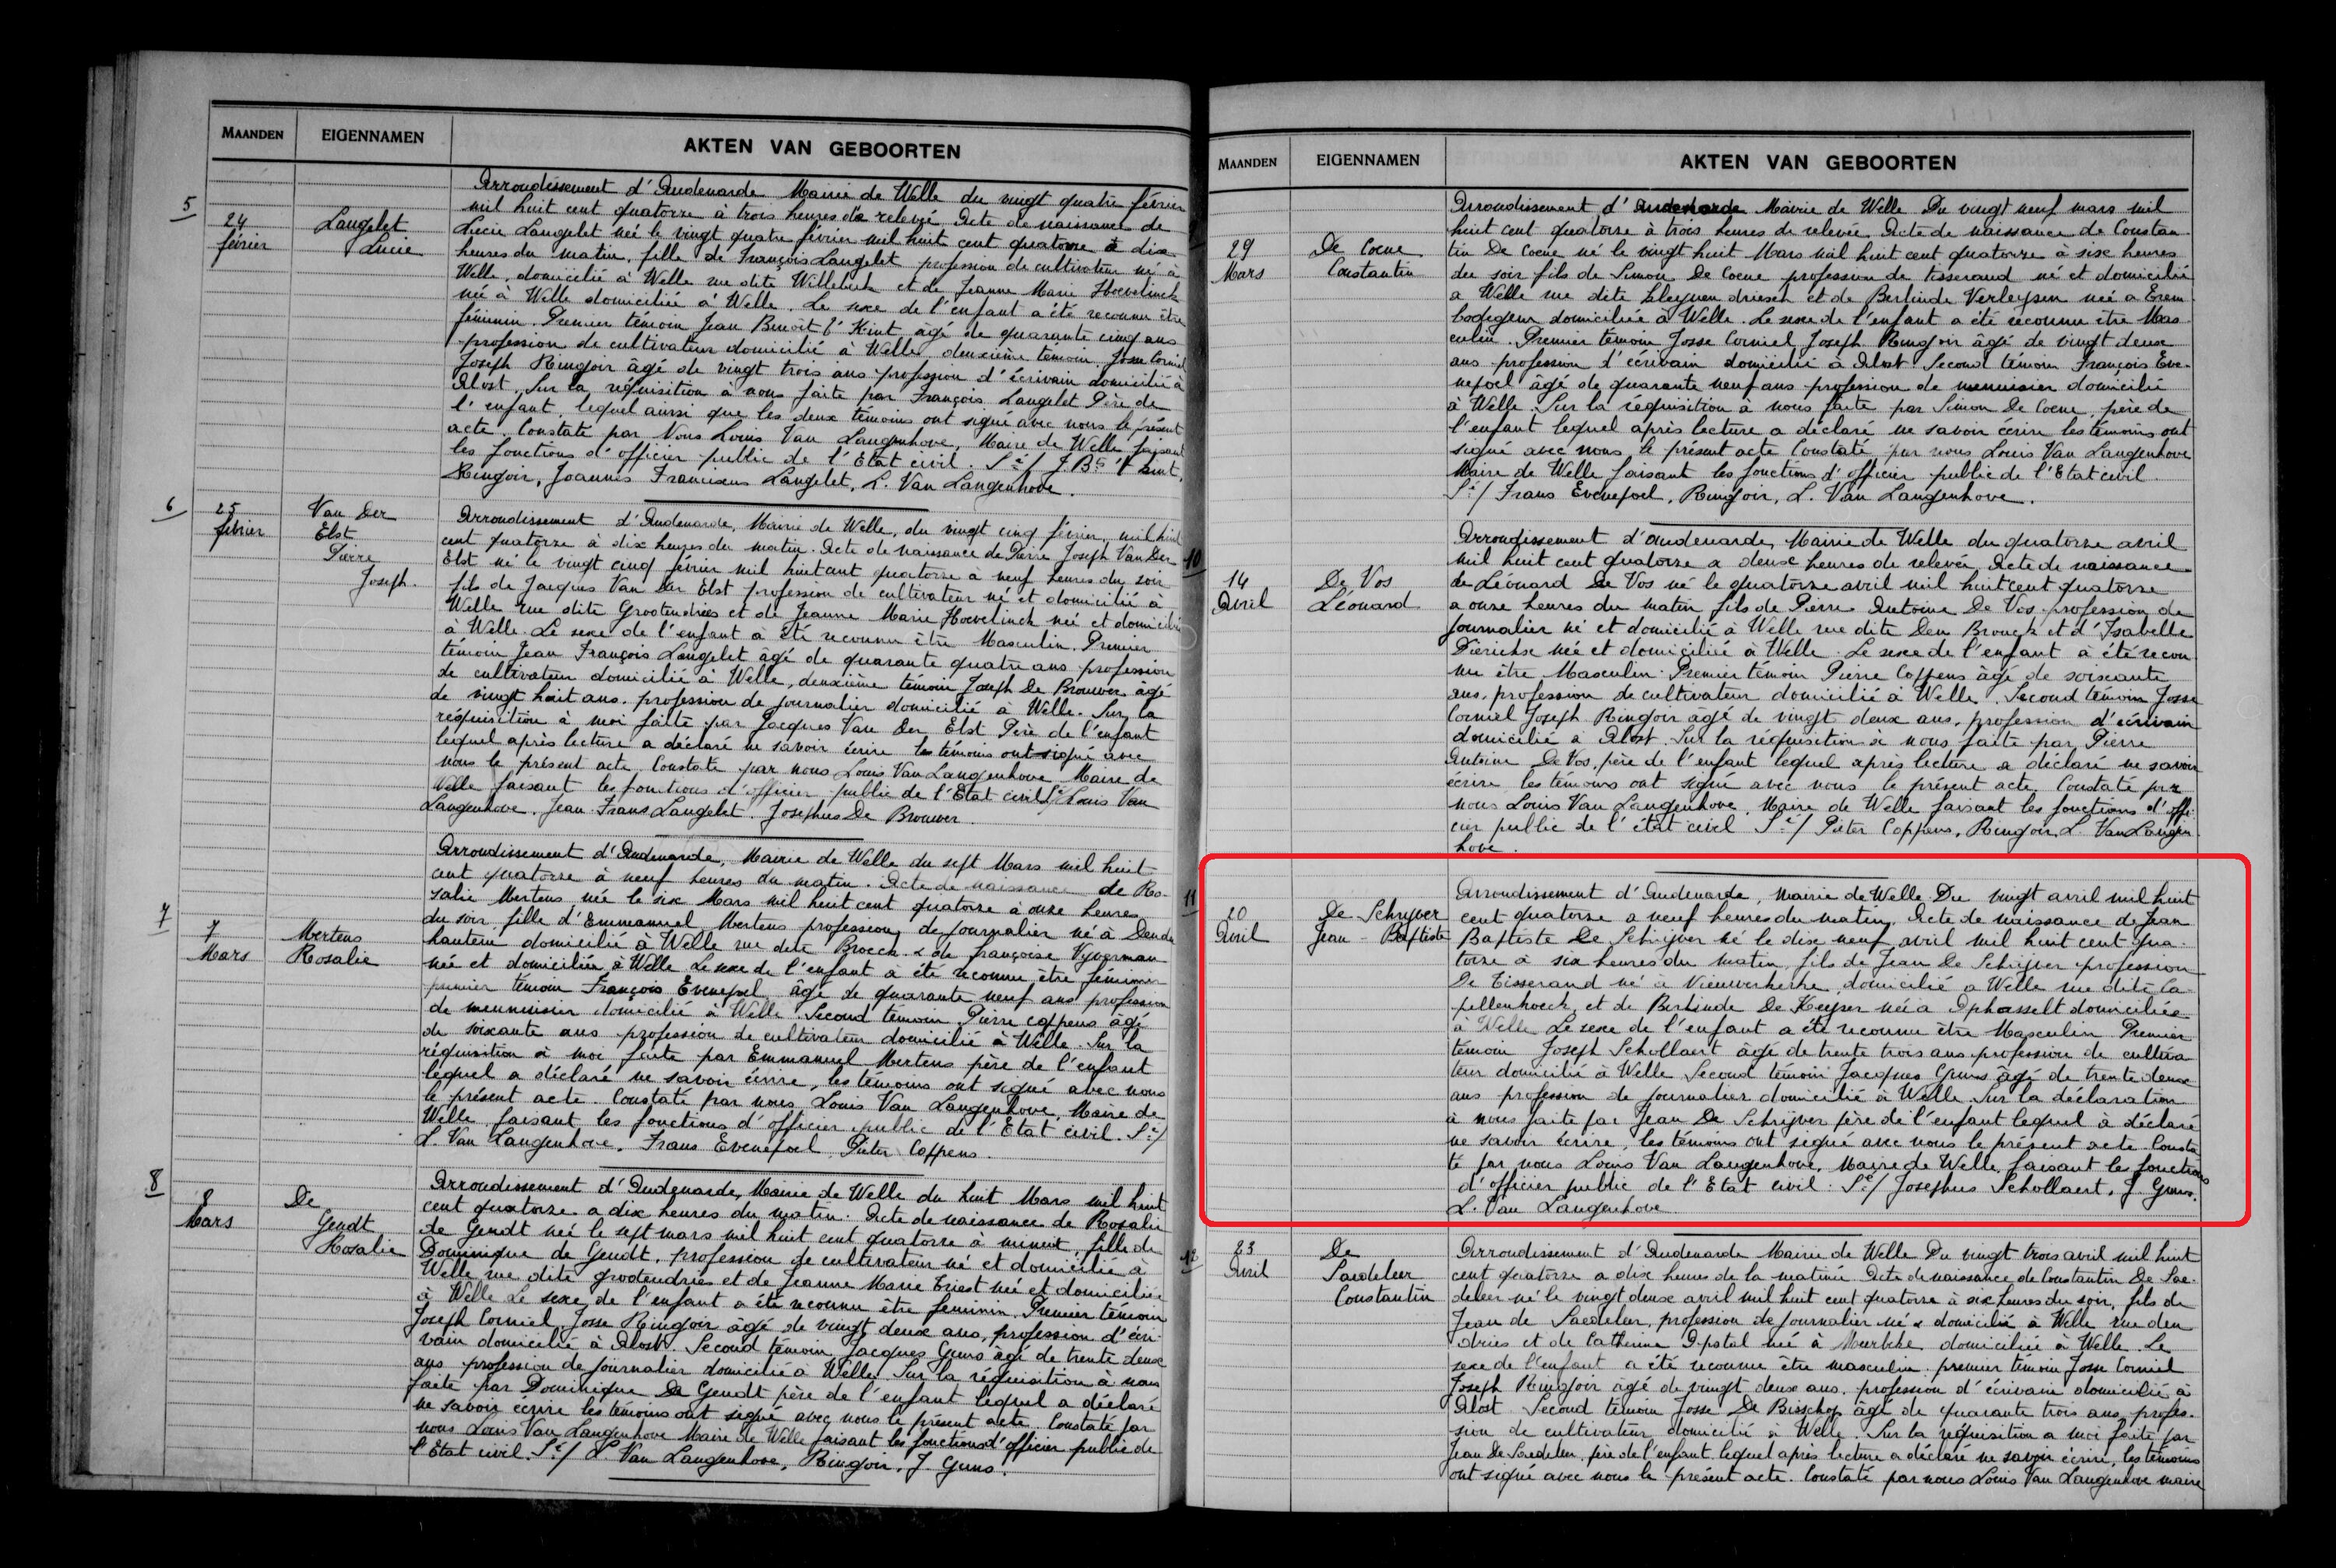 MAANDEN EIGENNAMEN AKTEN VAN GEBOORTEN
5
24
février
Langelet
Lucie
Arrondissement d'Audenarde Mairie de Welle du vingt quatre février
mil huit cent quatorze à trois heures de relevée Acte de naissance de
Lucie Langelet née le vingt quatre février mil huit cent quatorze à dix
heures du matin, fille de François Langelet profession de cultivateur né à
Welle, domicilié à Welle rue dite Willebeek et de Jeanne Marie Hoevelinck
née à Welle domiciliée à Welle. Le sexe de l'enfant a été reconnu être
féminin. Premier témoin Jean Benoit t' Kint âgé de quarante cinq ans
profession de cultivateur domicilié à Welle, deuxième témoin Josse Corniel
Joseph Ringoir âgé de vingt trois ans profession d'écrivain domicilié à
Alost. Sur la réquisition à nous faite par François Langelet Père de
l'enfant, lequel aussi que les deux témoins ont signé avec nous le présent
acte. Constaté par Nous Louis Van Langenhove, Maire de Welle faisant
les fonctions d'officier public de l'Etat civil. Sé/ J. Bte 't Kint,
Ringoir, Joannes Franciscus Langelet, L. Van Langenhove.
6
25
février
Van Der
Elst
Pierre
Joseph.
Arrondissement d'Audenarde, Mairie de Welle, du vingt cinq février, mil huit
cent quatorze à dix heures du matin. Acte de naissance de Pierre Joseph Van Der
Elst né le vingt cinq février mil huit cent quatorze à neuf heures du soir
fils de Jacques Van Der Elst profession de cultivateur né et domicilié à
Welle rue dite Grootendries et de Jeanne Marie Hoevelinck née et domiciliée
à Welle. Le sexe de l'enfant a été reconnu être Masculin. Premier
témoin Jean François Langelet âgé de quarante quatre ans profession
de cultivateur domicilié à Welle, deuxième témoin Joseph De Brouwer âgé
de vingt huit ans. profession de journalier domicilié à Welle. Sur la
réquisition à moi faite par Jacques Van Der Elst Père de l'enfant
lequel après lecture a déclaré ne savoir écrire les témoins ont signé avec
nous le présent acte. Constaté par nous Louis Van Langenhove Maire de
Welle faisant les fonctions d'officier public de l'Etat civil Sé/ Louis Van
Langenhove. Jean Frans Langelet. Josephus De Brouwer.
7
7
Mars
Mertens
Rosalie
Arrondissement d'Audenarde, Mairie de Welle du sept Mars mil huit
cent quatorze à neuf heures du matin. Acte de naissance de Ro-
salie Mertens née le six Mars mil huit cent quatorze à onze heures
du soir, fille d'Emmanuel Mertens profession de journalier né à Dender
hautem domicilié à Welle rue dite Broeck & de françoise Vyverman
née et domiciliée à Welle Le sexe de l'enfant a été reconnu être féminin
premier témoin François Evenepoel âgé de quarante neuf ans profession
de menuisier domicilié à Welle. Second témoin Pierre Coppens âgé
de soixante ans profession de cultivateur domicilié à Welle. Sur la
réquisition à moi faite par Emmanuel Mertens père de l'enfant
lequel a déclaré ne savoir écrire, les témoins ont signé avec nous
le présent acte. Constaté par nous Louis Van Langenhove, Maire de
Welle faisant les fonctions d'officier public de l'Etat civil. Sé/
L. Van Langenhove, Frans Evenepoel, Pieter Coppens.
8
8
Mars
De
Gendt
Rosalie
Arrondissement d'Audenarde, Mairie de Welle du huit Mars mil huit
cent quatorze a dix heures du matin. Acte de naissance de Rosalie
de Gendt née le sept mars mil huit cent quatorze à minuit, fille de
Dominique de Gendt, profession de cultivateur né et domicilié à
Welle rue dite grootendries et de Jeanne Marie Eriest née et domiciliée
à Welle Le sexe de l'enfant a été reconnu être feminin. Premier témoin
Joseph Corniel Josse Ringoir âgé de vingt deux ans, profession d'écri-
vain domicilié à Alost. Second témoin Jacques Gruno âgé de trente deux
ans profession de journalier domicilié à Welle. Sur la réquisition à nous
faite par Dominique De Gendt père de l'enfant lequel a déclaré
ne savoir écrire les témoins ont signé avec nous le présent acte. Constaté par
nous Louis Van Langenhove Maire de Welle faisant les fonctions d'officier public de
l'Etat civil. Sé/ L. Van Langenhove, Ringoir, J Guns.
MAANDEN EIGENNAMEN AKTEN VAN GEBOORTEN
29
Mars
De Coene
Constantin
Arrondissement d'Audenarde Mairie de Welle Du vingt neuf mars mil
huit cent quatorze à trois heures de relevée. Acte de naissance de Constan-
tin De Coene né le vingt huit Mars mil huit cent quatorze à six heures
du soir fils de Simon De Coene profession de tisserand né et domicilié
a Welle rue dite driesch et de Berlinde Verleysen née a Erem-
bodegem domiciliée à Welle. Le sexe de l'enfant a été reconnu être Mas-
culin. Premier témoin Josse Corniel Joseph Ringoir âgé de vingt deux
ans profession d'écrivain domicilié à Alost Second témoin François Eve-
nepoel âgé de quarante neuf ans profession de menuisier domicilié
à Welle. Sur la réquisition à nous faite par Simon De Coene, père de
l'enfant lequel après lecture a déclaré ne savoir écrire les témoins ont
signé avec nous le présent acte Constaté par nous Louis Van Langenhove
Maire de Welle faisant les fonctions d'officier public de l'Etat civil.
Sé/ Frans Evenepoel, Ringoir, L. Van Langenhove.
10
14
Avril
De Vos
Léonard
Arrondissement d'audenarde, Mairie de Welle du quatorze avril
mil huit cent quatorze a deux heures de relevée, Acte de naissance
de Léonard De Vos né le quatorze avril mil huit cent quatorze
a onze heures du matin fils de Pierre Antoine De Vos profession de
journalier né et domicilié à Welle rue dite Den Brouck et d'Isabelle
Dierickse née et domiciliée à Welle. Le sexe de l'enfant à été recon-
nu être Masculin. Premier témoin Pierre Coppens âgé de soixante
ans, profession de cultivateur domicilié à Welle. Second témoin Josse
Corniel Joseph Ringoir âgé de vingt deux ans, profession d'écrivain
domicilié à Alost. Sur la réquisition à nous faite par Pierre
Antoine De Vos, père de l'enfant lequel après lecture a déclaré ne savoir
écrire, les témoins ont signé avec nous le présent acte. Constaté par
nous Louis Van Langenhove, Maire de Welle faisant les fonctions d'offi-
cier public de l'état civil Sé/ Pieter Coppens, Ringoir, L. Van Langen-
hove.
11
20
Avril
De Schryver
Jean - Baptiste
Arrondissement d'Audenarde, Mairie de Welle Du vingt avril mil huit
cent quatorze a neuf heures du matin, Acte de naissance de Jean
Baptiste De Schrijver né le dix neuf avril mil huit cent qua-
torze à six heures du matin, fils de Jean De Schrijver profession
De Tisserand né a Nieuwerkerke, domicilié a Welle rue dite Ca-
pellenhoeck et de Berlinde De Keyser née a Ophasselt domiciliée
à Welle Le sexe de l'enfant a été reconnu être Masculin Premier
témoin Joseph Schollaert âgé de trente trois ans profession de cultiva
teur domicilié à Welle Second témoin Jacques Guns âgé de trente deux
ans profession de journalier domicilié à Welle Sur la déclaration
à nous faite par Jean De Schrijver père de l'enfant lequel à déclaré
ne savoir écrire, les témoins ont signé avec nous le présent acte. Consta-
té par nous Louis Van Langenhove, Maire de Welle, faisant les fonctions
d'officier public de l'Etat civil. Sé/ Josephus Schollaert, J. Guns.
L. Van Langenhove
12
23
Avril
De
Saedeleer
Constantin
Arrondissement d'Audenarde Mairie de Welle Du vingt trois avril mil huit
cent quatorze a dix heures de la matinée Acte de naissance de Constantin De Sae-
deleer né le vingt deux avril mil huit cent quatorze à six heures du soir, fils de
Jean de Saedeleer, profession de journalier né & domicilié à Welle rue den
dries et de Catherine D'postal née à Meerbeke domiciliée à Welle. Le
sexe de l'enfant a été reconnu être masculin. premier témoin Josse Corniel
Joseph Ringoir âgé de vingt deux ans. profession d'écrivain domicilié à
Alost Second témoin Josse De Bisschop âgé de quarante trois ans, profes-
sion de cultivateur domicilié a Welle. Sur la réquisition a moi faite par
Jean De Saedeleer, père de l'enfant lequel après lecture a déclaré ne savoir écrire, les témoins
ont signé avec nous le présent acte. Constaté par nous Louis Van Langenhove maire